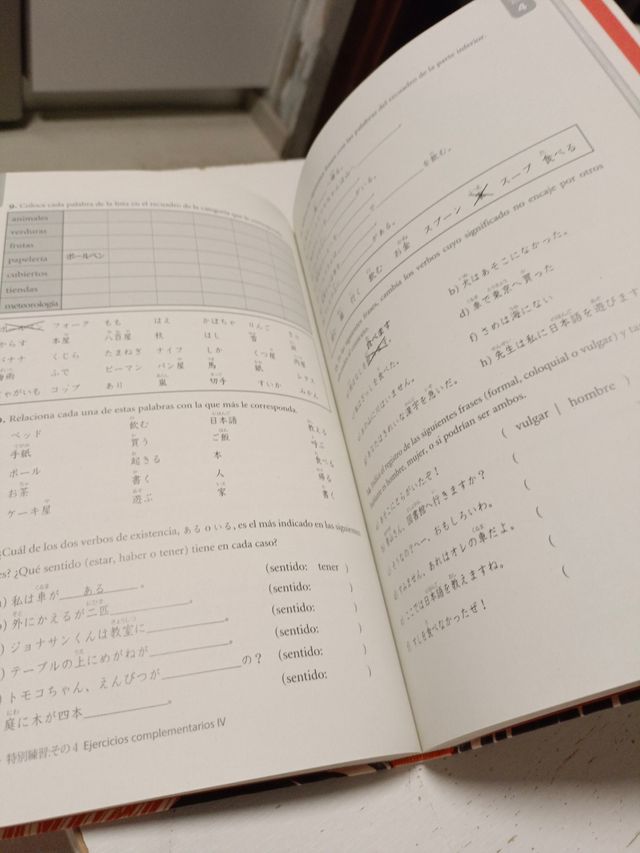 9. Coloca cada palabra de la lista en el recuadro de la categoría que le
animales
verduras
frutas
papelería ボールペン
cubiertos
tiendas
meteorología
フォーク もも はえ かぼちゃ りんご
からす 本屋 八百屋 秋 はし 雪
バナナ くじら たまねぎ ナイフ しか くつ屋 肉屋
ふで ピーマン パン屋 馬 紙 レタス
じゃがいも コップ あり 嵐 切手 すいか みかん
Relaciona cada una de estas palabras con la que más le corresponda.
ベッド 飲む 日本語 教える
手紙 買う ご飯 叫ぶ
ボール 起きる 本 食べる
お茶 書く 人 帰る
ケーキ屋 遊ぶ 家 書く
¿Cuál de los dos verbos de existencia, ある o いる, es el más indicado en las siguientes
es? ¿Qué sentido (estar, haber o tener) tiene en cada caso?
私は車が ある 。 (sentido: tener )
外にかえるが二匹 。 (sentido: )
ジョナサンくんは教室に 。 (sentido: )
テーブルの上にめがねが 。 (sentido: )
トモコちゃん、えんぴつが の? (sentido: )
庭に木が四本 。 (sentido: )
特別練習:その4 Ejercicios complementarios IV
4
frases con las palabras del recuadro de la parte inferior.
がいる。
を飲む。
がある。
行く 飲む お金 スプーン スープ 食べる
frases, cambia los verbos cuyo significado no encaje por otros
食べます
を食べた。
b) 犬はあそこになかった。
はいません。
d) 車で東京へ買った
きれいな漢字を急いだ。
f) さめは海にない
h) 先生は私に日本語を遊びます
el registro de las siguientes frases (formal, coloquial o vulgar) y
hombre, mujer, o si podrían ser ambos.
あそこにとらがいたぞ! ( vulgar | hombre )
さん、図書館へ行きますか? (
へー、おもしろいわ。 (
すみません、あれはオレの車だよ。 (
ここでは日本語を教えますね。 (
すしを食べなかったぜ! (